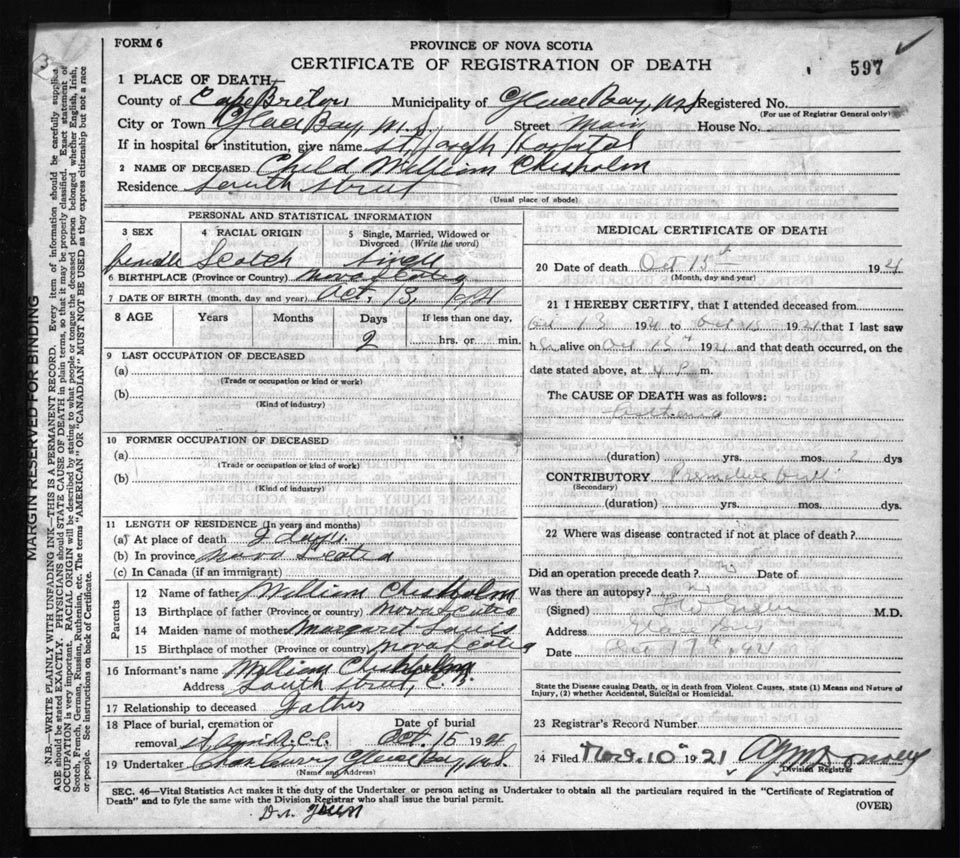 FORM 6
PROVINCE OF NOVA SCOTIA
CERTIFICATE OF REGISTRATION OF DEATH
597
3
MARGIN RESERVED FOR BINDING
N.B.—WRITE PLAINLY WITH UNFADING INK—THIS IS A PERMANENT RECORD. Every item of information should be carefully supplied.
AGE should be stated EXACTLY. PHYSICIANS should STATE CAUSE OF DEATH in plain terms, so that it may be properly classified. Exact statement of
OCCUPATION is very important. RACIAL ORIGIN will be described by stating to what people or tongue the deceased person belonged whether English, Irish,
Scotch, French, German, Russian, Ruthenian, etc. The terms "AMERICAN" OR "CANADIAN" MUST NOT BE USED as they express citizenship but not a race
or people. See instructions on back of Certificate.
1 PLACE OF DEATH
County of Cape Breton Municipality of Glace Bay, N.S. Registered No.
(For use of Registrar General only)
City or Town Glace Bay, N.S. Street Main House No.
If in hospital or institution, give name St. Joseph Hospital
2 NAME OF DECEASED Child William Chisholm
Residence South Street
(Usual place of abode)
PERSONAL AND STATISTICAL INFORMATION
3 SEX 4 RACIAL ORIGIN 5 Single, Married, Widowed or Divorced (Write the word)
Scotch Single
6 BIRTHPLACE (Province or Country) Nova Scotia
7 DATE OF BIRTH (month, day and year) Oct. 13, 1921
8 AGE Years Months Days If less than one day,
2 hrs. or min.
9 LAST OCCUPATION OF DECEASED
(a)
(Trade or occupation or kind or work)
(b)
(Kind of industry)
10 FORMER OCCUPATION OF DECEASED
(a)
(Trade or occupation or kind of work)
(b)
(Kind of industry)
11 LENGTH OF RESIDENCE (In years and months)
(a) At place of death 2 days
(b) In province Nova Scotia
(c) In Canada (if an immigrant)
Parents
12 Name of father William Chisholm
13 Birthplace of father (Province or country) Nova Scotia
14 Maiden name of mother Margaret
15 Birthplace of mother (Province or country) Nova Scotia
16 Informant's name William Chisholm
Address South Street, C.B.
17 Relationship to deceased Father
18 Place of burial, cremation or removal Date of burial
Oct. 15 1921
19 Undertaker Glace Bay, N.S.
(Name and Address)
MEDICAL CERTIFICATE OF DEATH
20 Date of death Oct 15th 1921
(Month, day and year)
21 I HEREBY CERTIFY, that I attended deceased from
Oct 13 1921 to Oct 15 1921 that I last saw
h alive on Oct 15th 1921 and that death occurred, on the
date stated above, at 4 P. m.
The CAUSE OF DEATH was as follows:
(duration) yrs. mos. 2 dys
CONTRIBUTORY Premature
(Secondary)
(duration) yrs. mos. dys.
22 Where was disease contracted if not at place of death?
Did an operation precede death? No Date of
Was there an autopsy? No
(Signed) M.D.
Address Glace Bay
Date Oct 17th, 1921
State the Disease causing Death, or in death from Violent Causes, state (1) Means and Nature of
Injury, (2) whether Accidental, Suicidal or Homicidal.
23 Registrar's Record Number
24 Filed Nov. 10th 1921
Division Registrar
SEC. 46—Vital Statistics Act makes it the duty of the Undertaker or person acting as Undertaker to obtain all the particulars required in the "Certificate of Registration of
Death" and to fyle the same with the Division Registrar who shall issue the burial permit.
(OVER)
Dr.